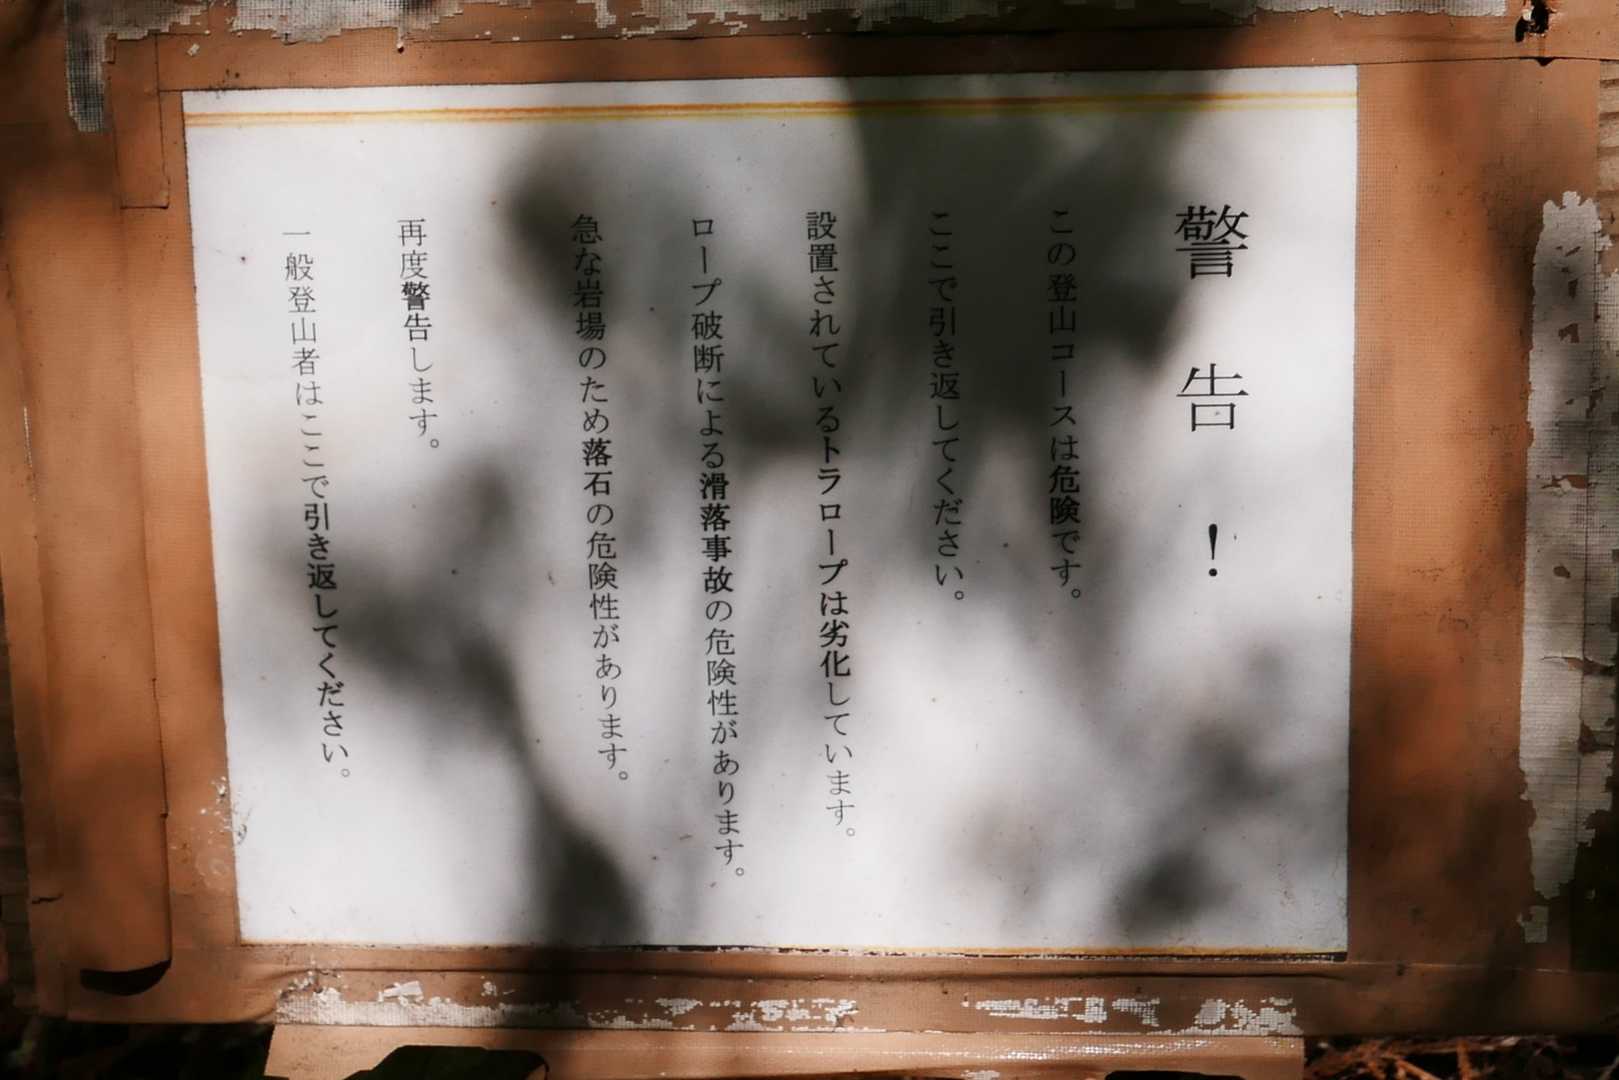 警告！
この登山コースは危険です。
ここで引き返してください。
設置されているトラロープは劣化しています。
ロープ破断による滑落事故の危険性があります。
急な岩場のため落石の危険性があります。
再度警告します。
一般登山者はここで引き返してください。